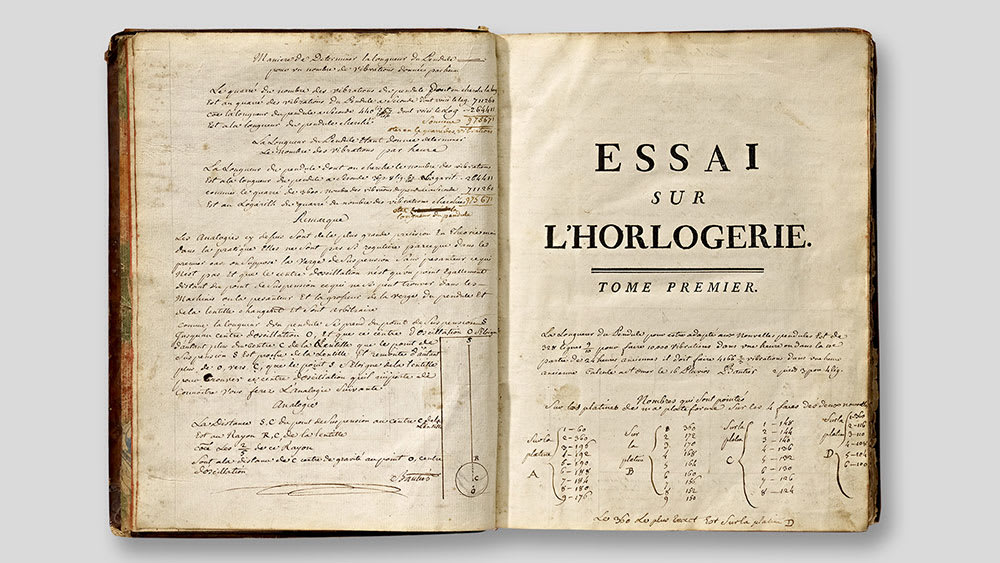 Maniere de Determiner la longueur du Pendule
pour un nombre de vibrations données par heure
Le quarré du nombre des vibrations du pendule dont on cherche la long
Est au quarré des vibrations du Pendule a seconde dont voici le log. 711260
come la longueur du pendule a seconde 440 dont voici le Log 264441
Est a la longueur du pendule cherché Somme 975671
oter en le quarré des vibrations
La Longueur du Pendule Etant donnée determiner
Le Nombre des vibrations par heure
La Longueur du pendule dont on cherche le nombre des vibrations
Est a la longueur du pendule a seconde Logarit. 264411
comme le quarré de 3600. nombre des vibrations du pendule a seconde 711260
Est au Logarith du quarré du nombre des vibrations cherchées 975671
longueur du pendule
Remarque
Les Analogies cy desus sont de la plus grande précision En théorie mais
dans la pratique Elles ne sont pas si regulieres parceque dans le
premier cas on supose la verge de suspension sans pesanteur ce qui
n'est pas Et que le centre d'oscillation n'est qu'un point Egallement
distant du point de suspension ce qui ne se peut trouver dans les
Machines ou la pesanteur Et la grosseur de la verge du pendule et
de la lentille changent et sont arbitraire
Comme la longueur d'un pendule se prend du point de Suspension S
jusqu'au centre d'oscillation O, Et que ce centre d'oscillation O. s'Eloigne
d'autant plus du centre C de la Lentille que le point de
Suspension S est proche de la Lentille. Et remonte d'autant
plus de O, vers C, que le point S s'Eloigne de la lentille
pour trouver ce centre d'oscillation qu'il importe de
Connoitre vous ferez l'analogie Suivante
Analogie
La Distance S.C du point de Suspension au centre C de la
Est au Rayon R.C. de la lentille
come Les 2/5 de ce Rayon
Sont a la distance de C centre de gravité au point O, centre
d'oscillation
S
R
C
O
ESSAI
SUR
L'HORLOGERIE.
TOME PREMIER.
La Longueur du Pendule pour estre adapté aux Nouvelles pendules Est de
328 lignes pour faire 10,000 vibrations dans une heure ou dans la 10e
partie de 24 heures anciennes il doit faire 4166 2/3 vibrations dans une heure
ancienne Calculé
Nombres qui sont pointés
Sur les platines de ma plateforme Sur les 4 faces des deux nouvelles
Sur la platine A
1 - 60
2 - 360
3 - 196
4 - 192
5 - 190
6 - 188
7 - 184
8 - 180
9 - 176
Sur la platine B
360
2 172
3 170
4 168
164
6 160
7 156
8 152
9 150
Sur la platine C
1 - 148
2 - 144
3 - 140
4 - 136
5 - 132
6 - 130
7 - 126
8 - 124
Sur la platine D
1 - 360
2 - 116
3 - 110
5 - 104
6 - 100
Le 360 Le plus Exact Est Sur la platine D